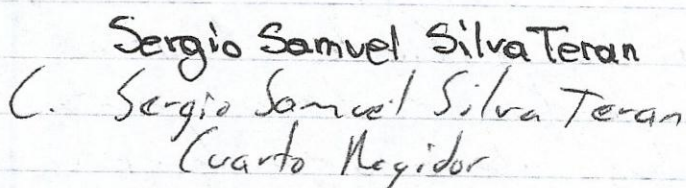 Sergio Samuel Silva Teran
C. Sergio Samuel Silva Teran
Cuarto Regidor